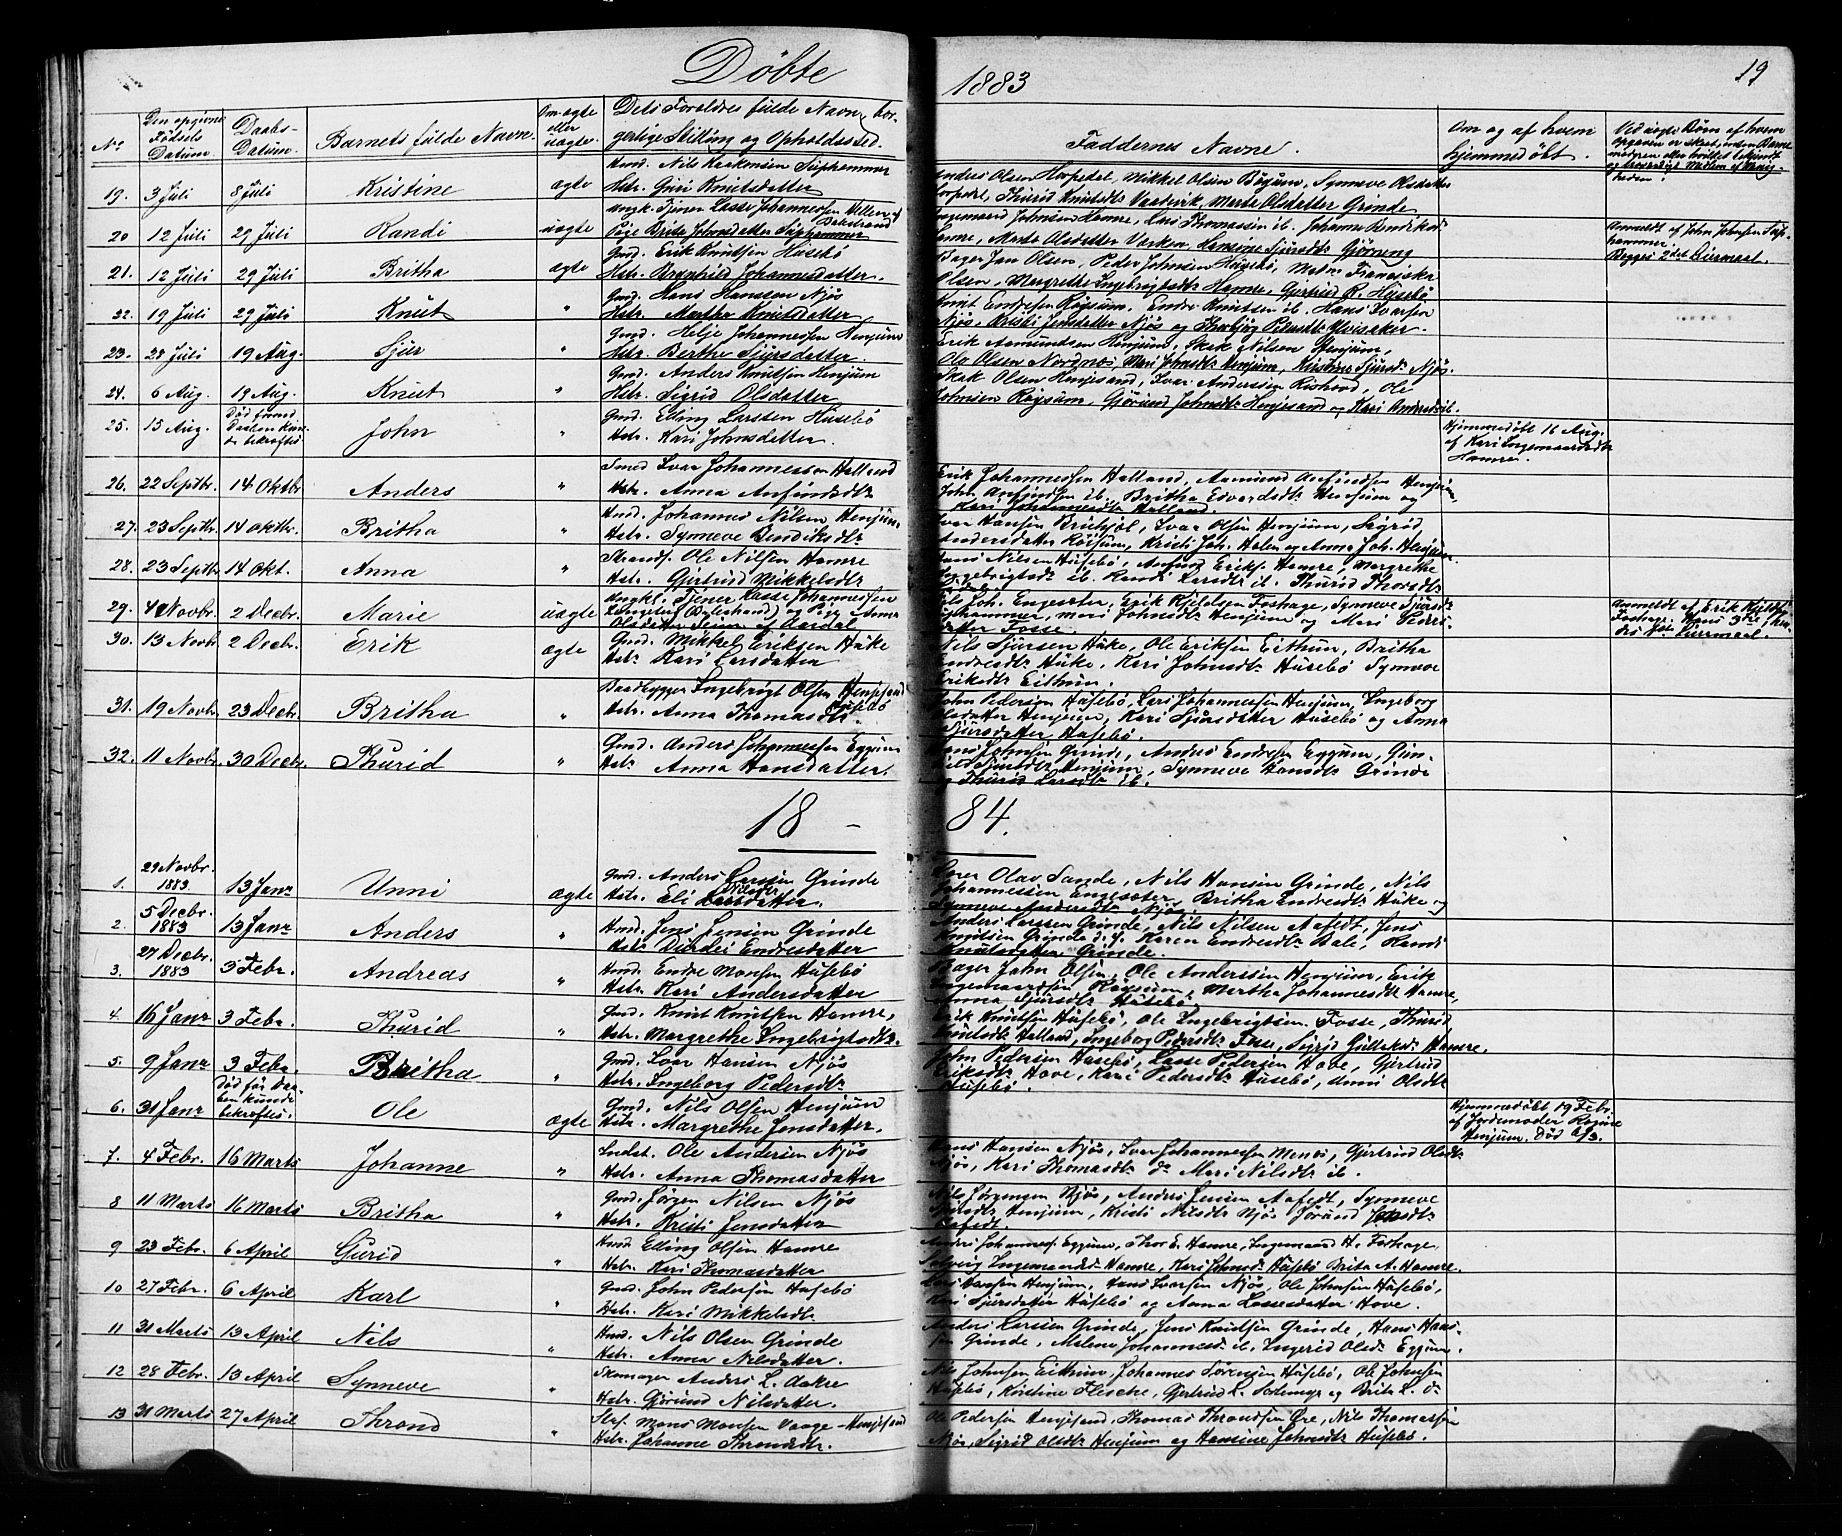 Døbte
1883
19
No.
Den opgivne Fødsels Datum.
Daabs-Datum.
Barnets fulde Navn.
Om ægte eller uægte.
Dets Forældres fulde Navn, borgerlige Stilling og Opholdssted.
Faddernes Navne.
Om og af hvem hjemmedøbt.
19. 3 Juli 8 Juli Kristine ægte Nils Haakonsen
Hstr. Guri Knutsdatter
Anders Olsen Hopedal, Mikkel Olsen Røysum, Synneve Olsdatter
Thurid Knutsdtr Vaatevik, Marta Olsdatter Grinde
20 12 Juli 29 Juli Randi uægte Ungk. Tjener Lasse Johannessen
Pige Brite Johnsdatter
Ingemund Johnsen Hamre, Lars Thomassen ib. Johanne Bendiksd.
Hamre, Marta Olsdatter
Anmeldt af John Johnsen
Begges 2det Leiermaal.
21. 12 Juli 29 Juli Britha ægte Gmd. Erik Knutsen Husebø
Hstr. Brynhild Johannesdatter.
Bager Jan Olsen, Peder Johnsen Husebø,
Olsen, Margrethe Ingebrigtsdtr Hamre, Gjertrud R. Husebø
22. 19 Juli 29 Juli Knut " Gmd. Hans Hanssen Njøs
Hstr. Martha Knutsdatter
Knut Endresen Røysum, Endre Knutsen ib. Hans Ivarsen
Njøs, Kristi Jensdatter Njøs og
23. 28 Juli 19 Aug. Sjur " Gmd. Helje Johannessen Henjum
Hstr. Berthe Sjursdatter.
Erik Aamundsen Henjum, Skak Nilsen Henjum,
Ola Olsen Nordnæs, Mari Johnsdtr Henjum, Kristine Sjursdtr Njøs.
24. 6 Aug. 19 Aug. Knut " Gmd. Anders Knutsen Henjum
Hstr. Sigrid Olsdatter
Skak Olsen Henjesand, Ivar Andersen Ole
Johnsen Røysum, Gjørond Johnsdtr Henjesand og Kari Andersd. ib.
25. 15 Aug. Død forend Daaben kunde bekræftes John " Gmd. Elling Larsen Husebø
Hstr. Kari Johnsdatter.
Hjemmedøbt 16 Aug.
af Kari Ingemundsdtr
Hamre.
26. 22 Septbr. 14 Oktbr Anders " Smed Ivar Johannessen Hatland
Hstr. Anna Anfindsdtr
Erik Johannessen Hatland, Aamund Anfindsen Henjum,
John Anfindsen ib. Britha Edvardsdtr Henjum og
Kari Johannesdtr Hatland.
27. 23 Septbr. 14 Oktbr. Britha " Hmd. Johannes Nilsen Henjum
Hstr. Synneve Bendiksdtr
Ivar Hansen Ivar Olsen Henjum, Sigrid
Andersdatter Røisum, Kristi Joh. og Anna Joh. Henjum
28. 23 Septbr 14 Okt. Anna " Strands. Ole Nilsen Hamre
Hstr. Gjertrud Mikkelsdtr
Hans Nilsen Husebø, Eriks. Hamre, Margrethe
Ingebrigtsd. ib. Randi Larsdtr ib. Thurid
29. 4 Novbr. 2 Decbr. Marie uægte Ungkf. Tjener Lasse Johannessen
(Balestrand) og Pige Anna
Joh. Engesæter, Erik Kjeldsen Foshage, Synneve Sjursdtr
Mari Johnsdtr Henjum og Mari
datter Fosse.
Anmeldt af Erik Kjelds.
Foshage. Hans 3die
des 1st Leiermaal.
30. 13 Novbr. 2 Decbr. Erik ægte Gmd. Mikkel Eriksen Huke
Hstr Kari Larsdatter
Nils Sjursen Huke, Ole Eriksen Eithun, Britha
Endresdtr Huke, Kari Johnsdtr Husebø Synneve
Eriksdtr Eithun.
31. 19 Novbr. 23 Decbr. Britha " Baadbygger Ingebrigt Olsen Henjesand
Hstr. Anna Thomasdtr. Husebø
John Pedersen Husebø, Lars Johannessen Henjum, Ingeborg
Olsdatter Henjum, Kari Sjursdatter Husebø og Anna
Sjursdatter Husebø.
32. 11 Novbr. 30 Decbr. Thurid " Gmd. Anders Johannessen Eggum
Hstr Anna Hansdatter.
Hans Johnsen Grinde, Anders Endresen Eggum,
Sjursdtr Henjum, Synneve Hansdtr Grinde
og Thurid Larsdtr ib.
18 - 84.
1. 29 Novbr. 1883. 13 Janr Unni ægte Gmd. Anders Larsen Grinde
Hstr. Eli Nilsdatter.
Lærer Olav Sande, Nils Hansen Grinde, Nils
Johannessen Engesæter, Britha Endresdtr Huke og
Synneve Andersdtr Njøs.
2. 5 Decbr. 1883 13 Janr Anders " Hmd. Jens Jensen Grinde
Hstr. Endresdatter
Anders Larssen Grinde, Nils Nilsen Aafedt, Jens
Knudsen Grinde d. y. Karen Endresdtr Bale, Randi
Knutsdatter Grinde.
3. 27 Decbr. 1883 3 Febr. Andreas " Hmd. Endre Monsen Husebø
Hstr. Kari Andersdatter
Bager John Olsen, Ole Anderssen Henjum, Erik
Ingemundsen Røysum, Martha Johannesdtr Hamre,
Anna Sjursdtr Husebø.
4. 16 Janr 3 Febr. Thurid " Gmd. Knut Knutsen Hamre,
Hstr. Margrethe Ingebrigtsdtr.
Erik Knutsen Husebø, Ole Ingebrigtsen Fosse, Thurid
Knutsdtr Hatland, Ingeborg Pedersdtr Fosse, Sigrid Gulleksdtr Hamre.
5. 9 Janr 3 Febr. Britha " Gmd. Ivar Hansen Njøs
Hstr. Ingeborg Pedersdtr
John Pedersen Husebø, Lasse Pedersen Hove, Gjertrud
Eriksdtr Hove, Kari Pedersdtr Husebø, Unni Olsdtr
Husebø.
6. 31 Janr Død før Daaben kunde bekræftes. Ole ægte Gmd. Nils Olsen Henjum
Hstr. Margrethe Jensdatter.
Hjemmedøbt 19 Febr.
af Jordemoder Regine
Henjum. Død
7. 4 Febr. 16 Marts Johanne " Indst. Ole Andersen Njøs
Hstr. Anna Thomasdatter
Hans Hansen Njøs, Ivar Johannessen Menes, Gjertrud Olsdtr
Njøs, Kari Thomasdtr do Mari Nilsdtr ib.
8 11 Marts 16 Marts Britha " Gmd. Jørgen Nilsen Njøs
Hstr. Kristi Jensdatter
Nils Jørgensen Njøs, Anders Jensen Aafedt, Synneve
Nilsdtr Henjum, Kristi Nilsdtr Njøs Jørund Jensdtr
Aafedt.
9 23 Febr. 6 April Gurid " Hmd. Elling Olsen Hamre
Hstr. Kari Thomasdatter
Anders Johanness. Eggum, Thor E. Hamre, Ingemund H. Foshage,
Solveig Ingemundsdtr Hamre, Kari Johnsdtr Husebø Brita A. Hamre.
10 27 Febr. 6 April Karl " Gmd. John Pedersen Husebø
Hstr. Kari Mikkelsdtr
Lars Hansen Henjum, Hans Ivarsen Njøs, Ole Johnsen Husebø,
Kari Sjursdatter Husebø og Anna Lassesdatter Hove.
11 31 Marts 13 April Nils " Hmd. Nils Olsen Grinde
Hstr. Anna Nilsdatter.
Anders Larsen Grinde, Jens Knudsen Grinde, Hans Hans-
sen Grinde, Malene Johannesdtr ib. Ingerid Olsdtr Eggum.
12 28 Febr. 13 April Synneve " Skomager Anders L. Aakre
Hstr. Gjørund Nilsdatter.
Nils Johnsen Eithun, Johannes Husebø, Ole Johnsen
Husebø, Kristine Flesche, Gjertrud L. og Brita L. do
13 31 Marts 27 April Thrond " Mons Monsen Vange-Henjesand
Hstr. Johanne Throndsdtr.
Ole Pedersen Henjesand, Thomas Throndsen Øre, Nils Thomassen
Njøs, Sigrid Olsdtr Henjum og Hansine Johnsdtr Husebø.